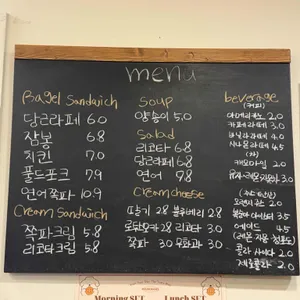 menu
Bagel Sandwich
당근라페 6.0
잠봉 6.8
치킨 7.0
풀드포크 7.9
연어쪽파 10.9
Cream Sandwich
쪽파크림 5.8
리코타크림 5.8
Soup
양송이 5.0
Salad
리코타 6.8
당근라페 6.8
연어 7.8
Creamcheese
딸기 2.8 블루베리 2.8
쪽파 3.0 무화과 3.0
beverage
(커피)
아메리카노 2.0
카페라떼 3.0
바닐라라떼 4.0
(차)
캐모마일 2.0
오렌지쥬스 2.0
에이드 4.5
콜라 사이다 2.0
제로콜라 2.0
Morning SET
Lunch SET